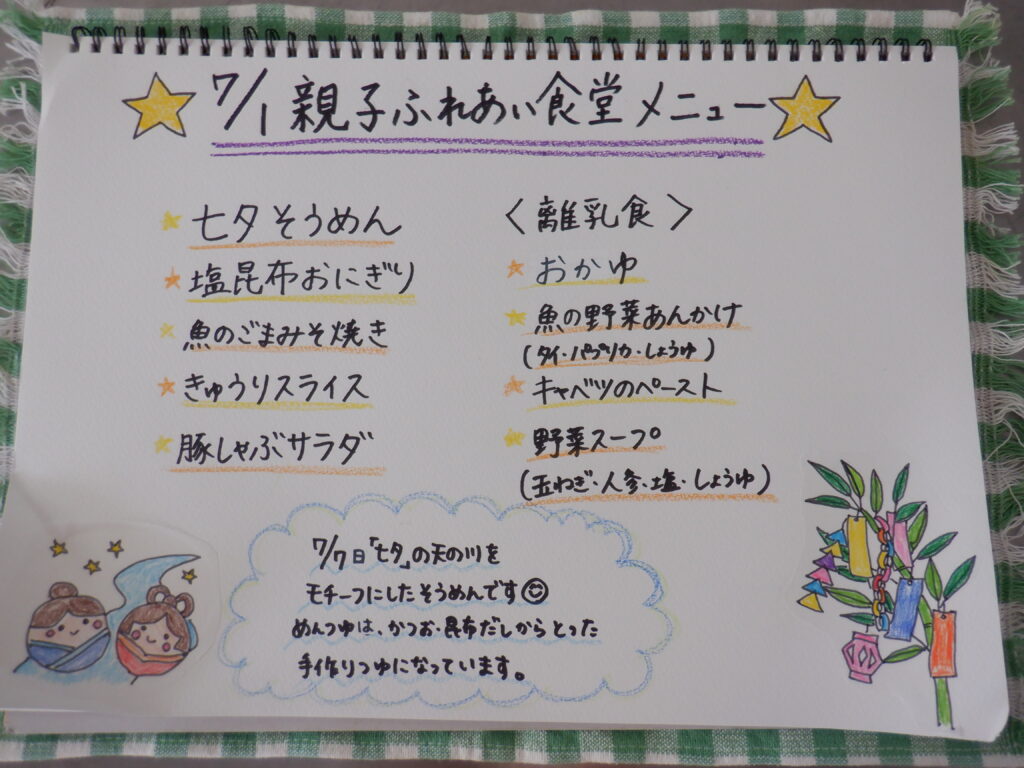 7/1 親子ふれあい食堂メニュー
七夕そうめん
塩昆布おにぎり
魚のごまみそ焼き
きゅうりスライス
豚しゃぶサラダ
〈離乳食〉
おかゆ
魚の野菜あんかけ
(タイ・パプリカ・しょうゆ)
キャベツのペースト
野菜スープ
(玉ねぎ・人参・塩・しょうゆ)
7/7日「七夕」の天の川を
モチーフにしたそうめんです
めんつゆは、かつお・昆布だしからとった
手作りつゆになっています。